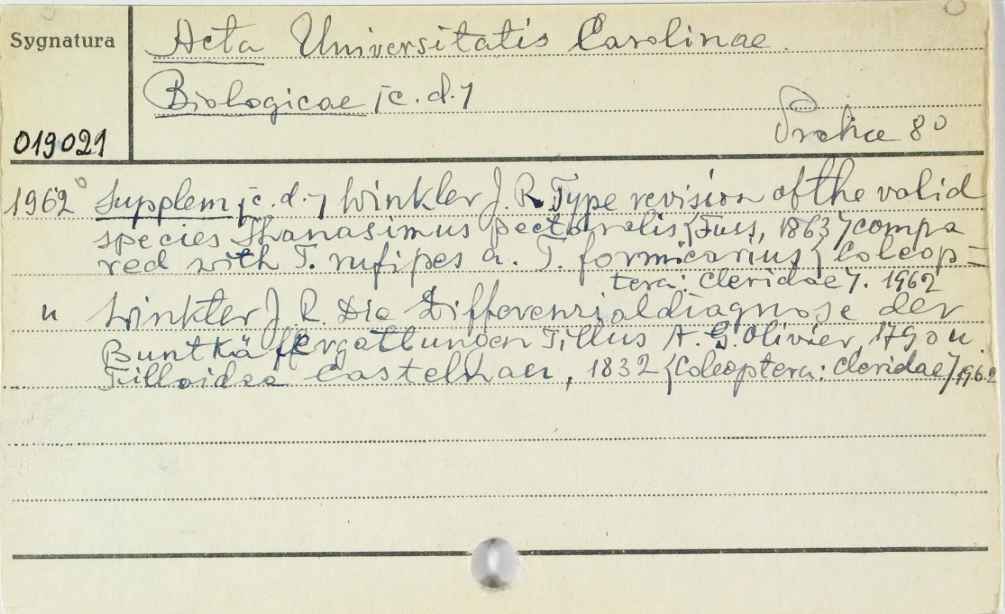 Sygnatura
Acta Universitatis Carolinae.
Biologicae /c.d./
Praha 8°
019021
1962 Supplem /c.d./ Winkler J. R. Type revision of the valid
species Thanasimus pectoralis (Fuss, 1863) compa
red with T. rufipes a. T. formicarius (Coleop=
tera: Cleridae). 1962
" Winkler J. R. Die Differenzialdiagnose der
Buntkäfergattungen Tillus A. G. Olivier, 1790 u.
Tilloidea Castelnau, 1832 (Coleoptera: Cleridae) 1962